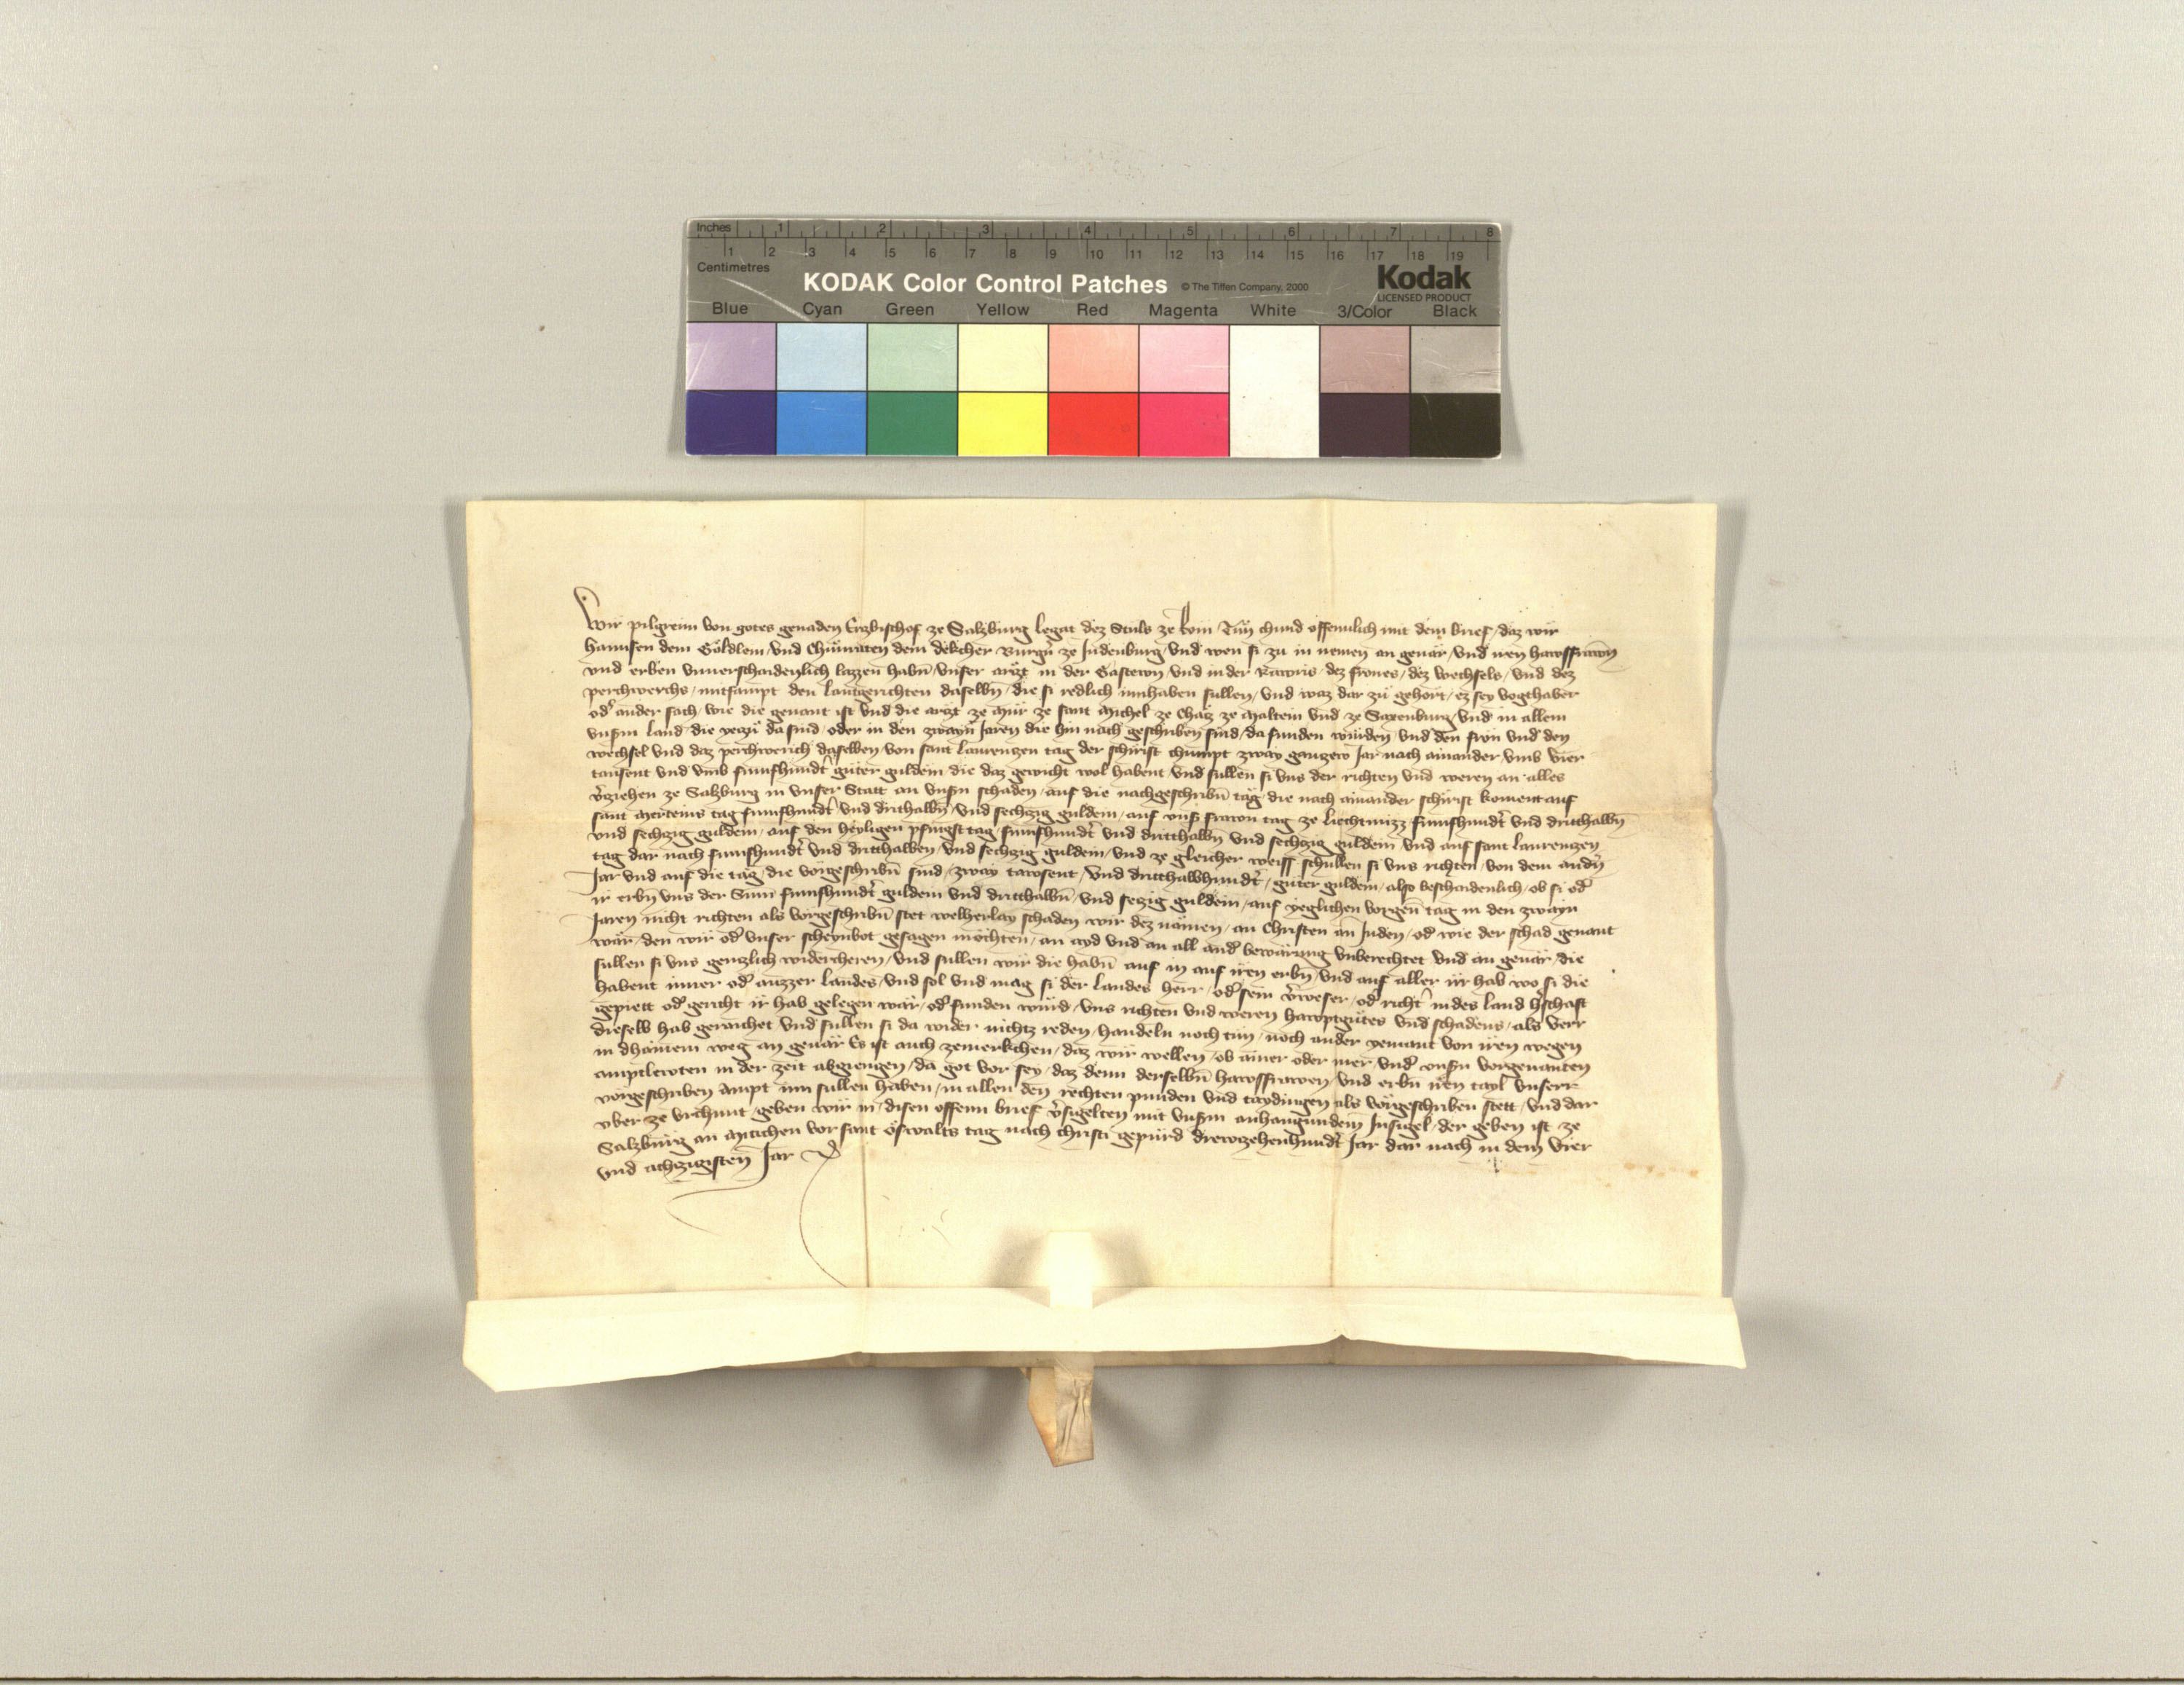 Inches 1 2 3 4 5 6 7 8
1 2 3 4 5 6 7 8 9 10 11 12 13 14 15 16 17 18 19
Centimetres
KODAK Color Control Patches © The Tiffen Company, 2000 Kodak
LICENSED PRODUCT
Blue Cyan Green Yellow Red Magenta White 3/Color Black
Wir pilgreim von gotes genaden Erzbischof ze Salzburg legat dez Stuls ze Rom Tůn chund offennlich mit dem brief / daz wir
hannsen dem Göldlein / vnd Chůnraten dem dekcher Burgern ze Judenburg / vnd wen si zu in nemen an geuär / vnd iren hawsfrawn
vnd erben vnuerschaidenlich lazzen habn̄ / vnser ärzt in der Gastewn / vnd in der Rawris / dez frones / dez wechsels / vnd dez
perchwerchs / mitsampt den lantgerichten daselbn̄ / die si redlich innhaben sullen / vnd waz dar zů gehört / ez sey vogthaber
od' ander sach / wie die genant ist vnd die ärzt ze Mür ze sant Michel ze Chätz ze Maltein vnd ze Saxenburg / vnd in allem
vnserm land / die yeczů da sind / oder in den zwayn Jaren die hin nach geschriben sind / da funden würden / vnd den fron vnd den
wechsel vnd daz perchwerich daselben / von sant laurenzen tag der schirist chümpt zway ganzew Jar nach ainander vmb vier
tausent vnd vmb fumfhundt' güter guldein die daz gewicht wol habent vnd sullen si vns der richten vnd weren an alles
v'ziehen ze Salzburg in vnser Statt an vnsern schaden / auf die nachgeschribn̄ täg / die nach ainander schirist koment auf
sant Merteins tag fumfhundt' vnd dritthalbn̄ / vnd sechzig guldein / auf vnser frawn tag ze liechtmizz fumfhundt' vnd dritthalbn̄
vnd sechzig guldein / auf den heyligen pfingsttag / fumfhundt' vnd dritthalbn̄ vnd sechzig guldein vnd auf sant laurenzen
tag dar nach fumfhundt' vnd dritthalben / vnd sechzig guldein / vnd ze gleicher weiss schullen si vns richten / von dem andern
Jar vnd auf die täg / die vorgeschribn̄ sind / zway tawsent / vnd dritthalbhundt' / güter guldein / also beschaidenlich / ob si od'
ir erbn̄ vns der Sum fumfhundt' guldein vnd dritthalbn̄ / vnd sezig guldein / auf yeglichen vorgen̄ tag in den zwayn
Jaren nicht richten als vorgeschribn̄ stet welherlay schaden wir dez nämen / an Christen an Juden / od' wie der schad genant
wär / den wir od' vnser scheynbot gesagen möchten / an ayd vnd an all and' bewärung vnberechtet vnd an geuär / die
sullen si vns genzlich widercheren / vnd sullen wir die habn̄ auf in auf iren erbn̄ / vnd auf aller ir hab wo si die
habent inner od' auzzer landes / vnd sol vnd mag si der landes herr / od' sein v'weser / od' richt' in des land h'schaft
gepiett od' gericht ir hab gelegen wär / od' funden würd / vns richten vnd weren hawptgütes vnd schadens / als verr
dieselb hab geraichet vnd sullen si da wider nichtz reden / handeln noch tün / noch ander yemant von iren wegen
in dhainem weg an geuär Es ist auch zemerkchen / daz wir wellen / ob ainer oder mer / vnd' vnsern vorgenanten
amptlewten in der zeit abgiengen / da got vor sey / daz denn derselbn̄ hawsfrawen / vnd erbn̄ iren tayl vnserr
vorgeschriben ampt inn sullen haben / in allen den rechten punden vnd taydingen als vorgeschriben stett / vnd dar
vber ze vrchunt / geben wir in / disen offenn brief v'sigelten mit vnserm anhangundem Insigel / der geben ist ze
Salzburg an Mitichen vor sant Oswalts tag nach christi gepürd drewzehenhundt' Jar dar nach in dem vier
vnd achzigisten Jar